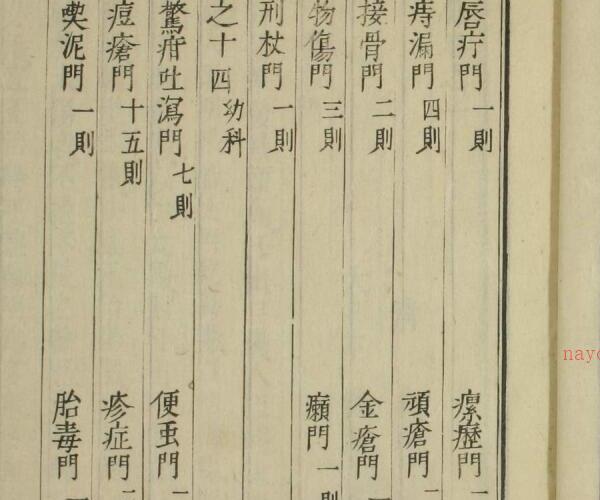 唇疔門 一則 瘰癧門
痔漏門 四則 頑瘡門
接骨門 二則 金瘡門
物傷門 三則 癩門 一則
刑杖門 一則
之十四 幼科
驚疳吐瀉門 七則 便虫門
痘瘡門 十五則 疹症門
喫泥門 一則 胎毒門